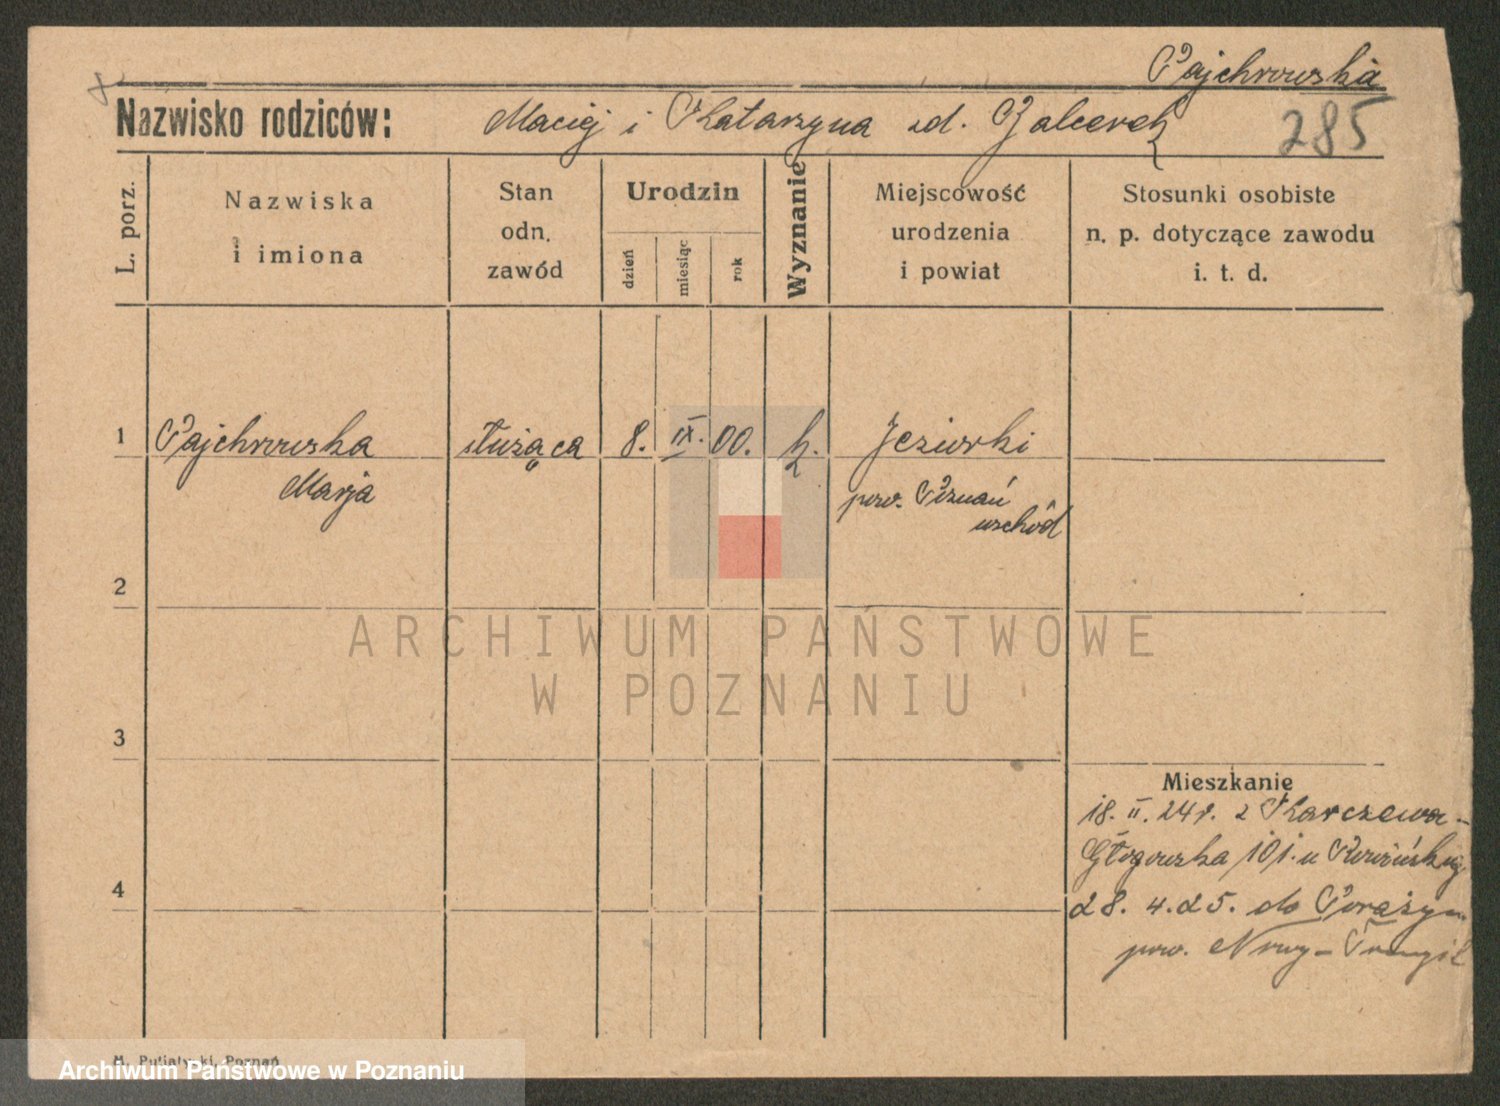 Pajchrowska
Nazwisko rodziców: Maciej i Katarzyna zd.
285
L. porz.
Nazwiska
i imiona
Stan
odn.
zawód
Urodzin
dzień
miesiąc
rok
Wyznanie
Miejscowość
urodzenia
i powiat
Stosunki osobiste
n. p. dotyczące zawodu
i. t. d.
1 Pajchrowska służąca 8. IX. 00. k. Jeziorki
Marja
pow. Poznań
wschód
2
ARCHIWUM PAŃSTWOWE
W POZNANIU
3
Mieszkanie
18. II. 24 r. z Karczewa -
Głogowska 101. u
4
28. 4. 25. do
pow. Nowy-Tomyśl
M. Putiatycki, Poznań
Archiwum Państwowe w Poznaniu